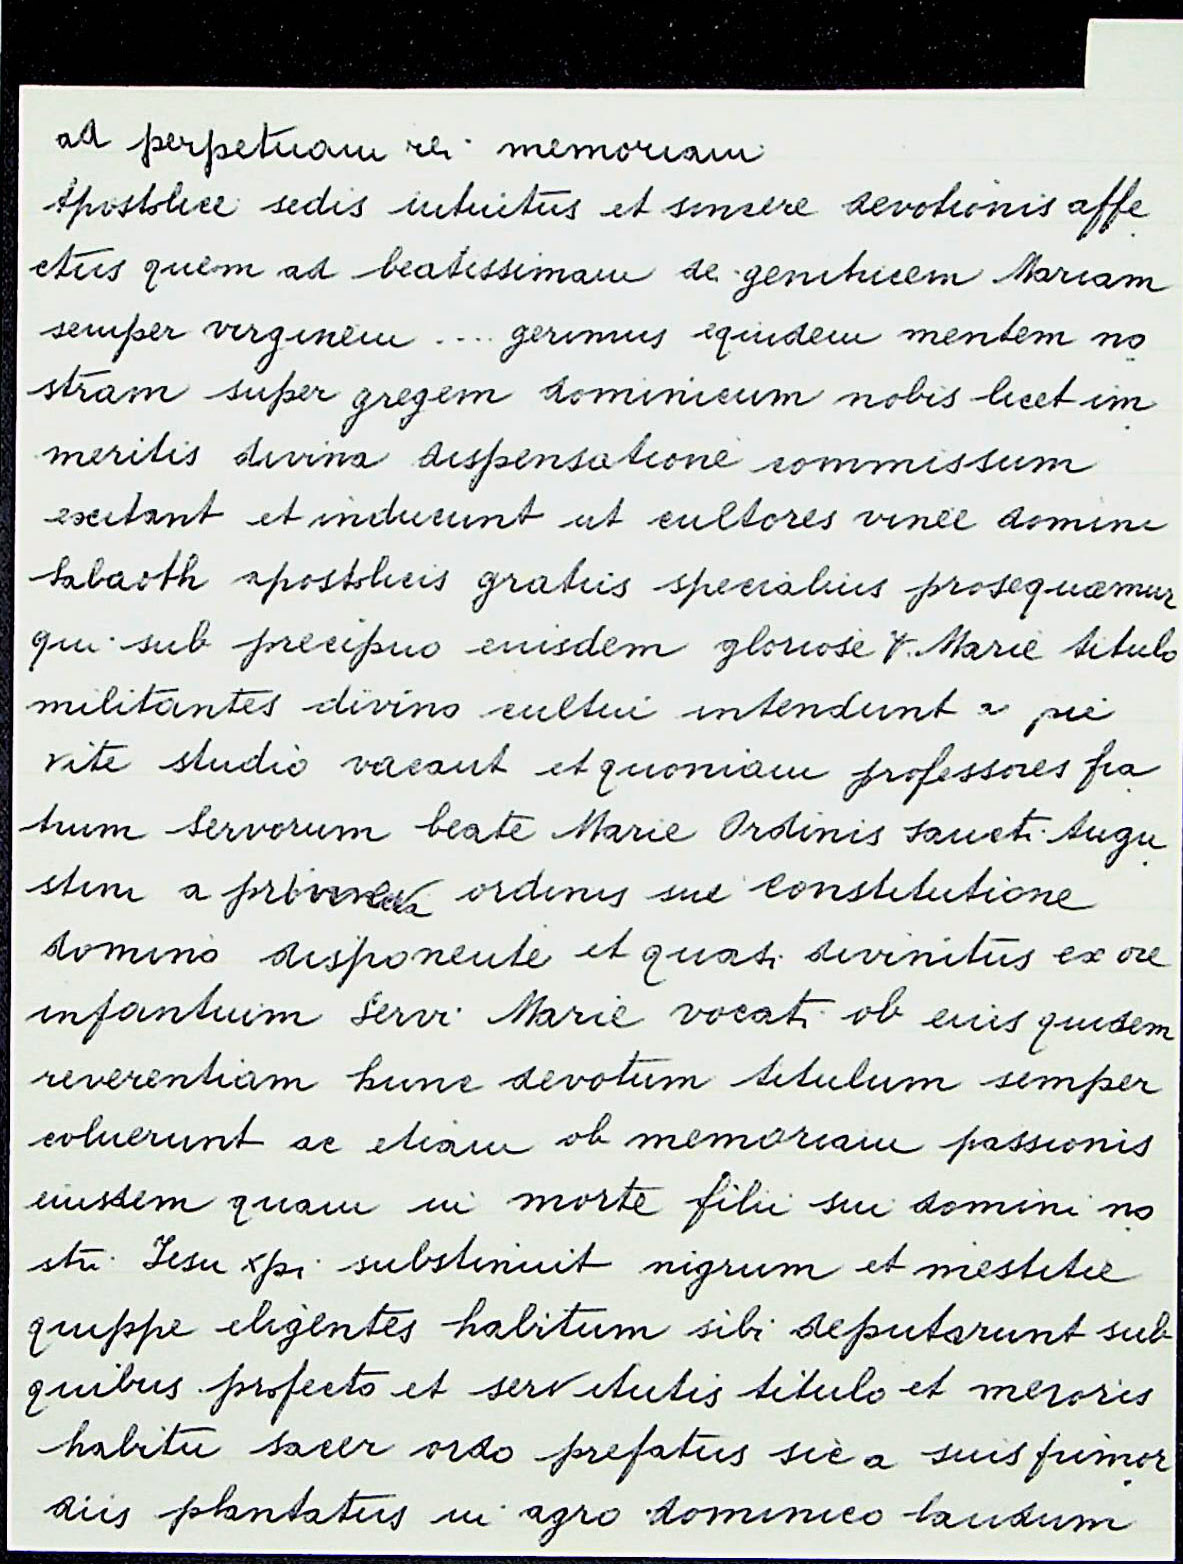 ad perpetuam rei memoriam
Apostolice sedis intuitus et sincere devotionis affe
ctus quem ad beatissimam dei genitricem Mariam
semper virginem .... gerimus equidem mentem no
stram super gregem dominicum nobis licet im
meritis divina dispensatione commissum
excitant et inducunt ut cultores vinee domini
Sabaoth apostolicis gratiis specialius prosequamur
qui sub precipuo eiusdem gloriose V. Marie titulo
militantes divino cultui intendunt a pie
vite studio vacant et quoniam professores fra
trum Servorum beate Marie Ordinis sancti Augu
stini a ordinis sue constitutione
domino disponente et quasi divinitus ex ore
infantium Servi Marie vocati ob eius quidem
reverentiam hunc devotum titulum semper
coluerunt ac etiam ob memoriam passionis
eiusdem quam in morte filii sui domini no
stri Iesu xpi substinuit nigrum et mestitie
quippe eligentes habitum sibi deputarunt sub
quibus profecto et servitutis titulo et meroris
habitu sacer ordo prefatus sic a suis primor
diis plantatus in agro dominico laudum